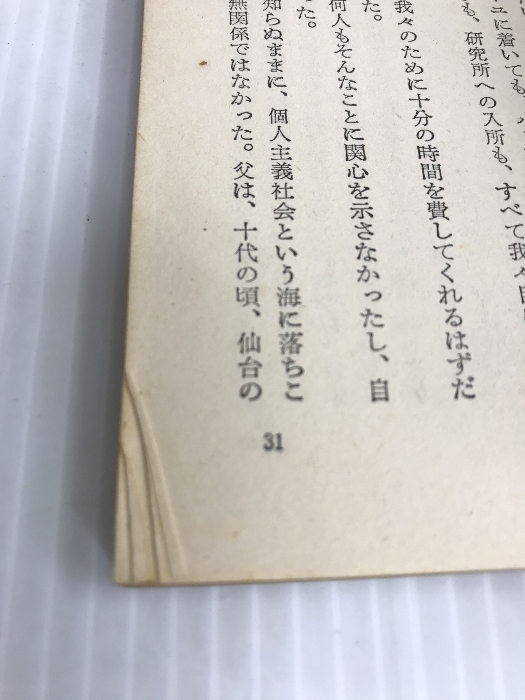 も、研究所への入所も、すべて我々
我々のために十分の時間を費してくれるはずだ
た。
何人もそんなことに関心を示さなかったし、自
った。
知らぬままに、個人主義社会という海に落ちこ
無関係ではなかった。父は、十代の頃、仙台の
31